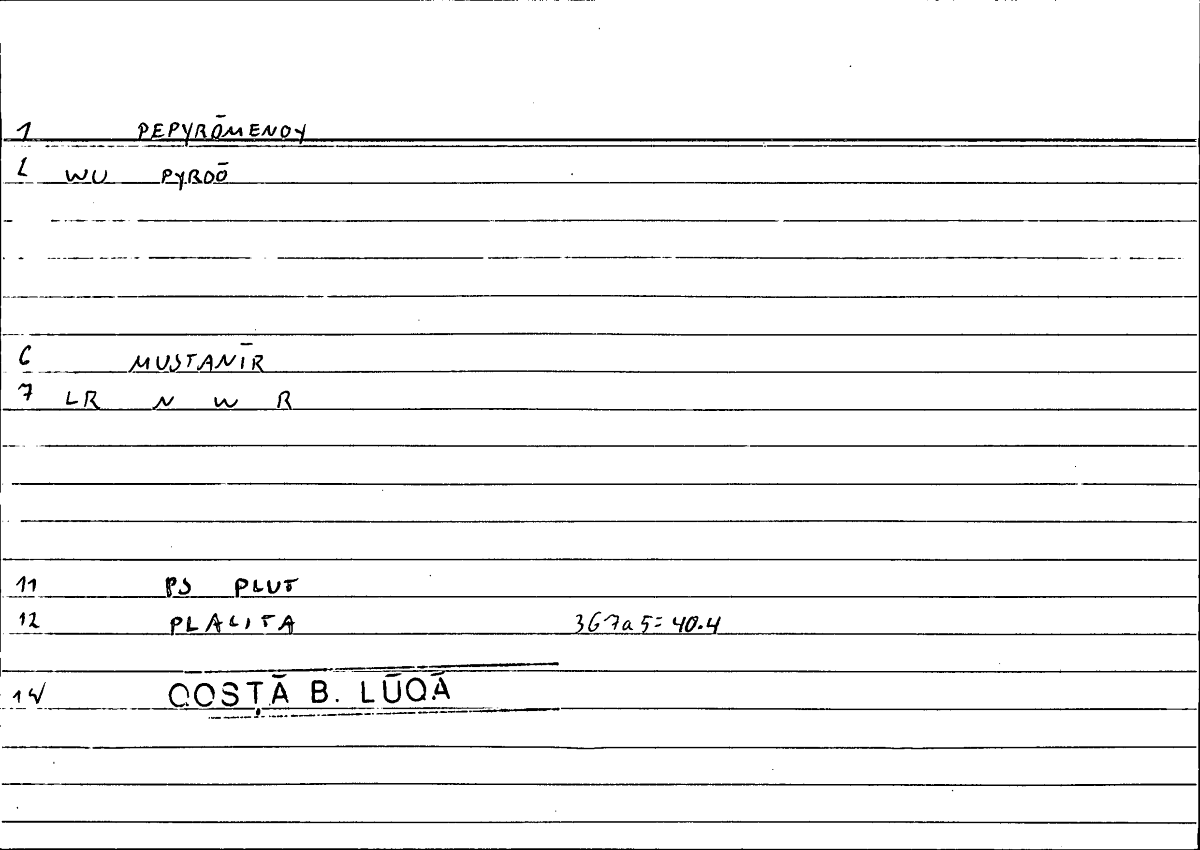 1 PEPYRŌMENOY
2 WU PYROŌ
6 MUSTANĪR
7 LR N W R
11 PS PLUT
12 PLACITA 367a5=40.4
14 QOSṬĀ B. LŪQĀ